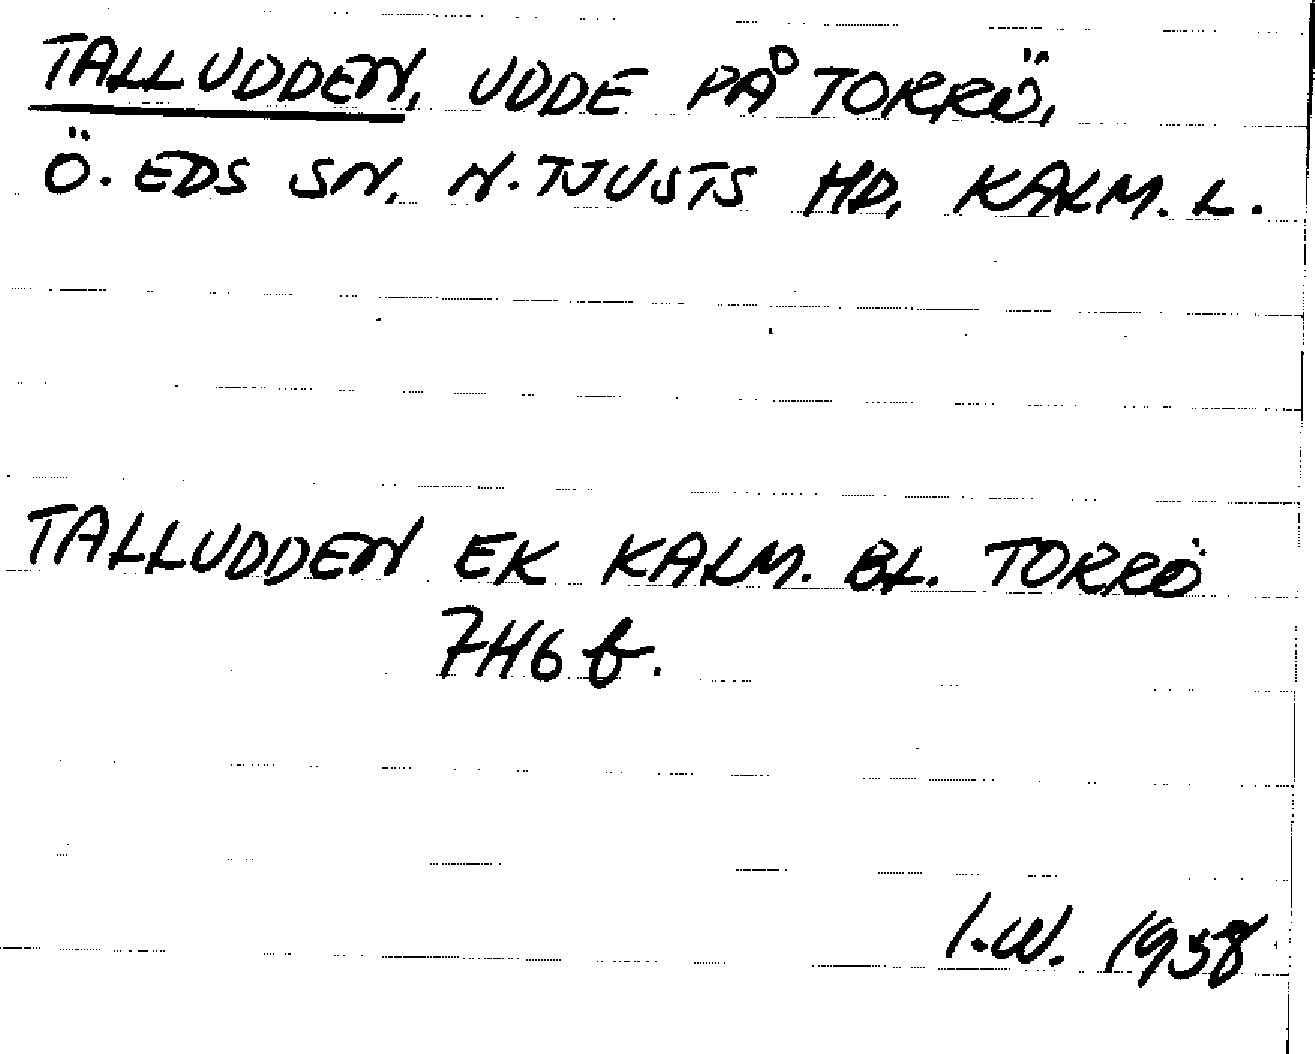 TALLUDDEN, UDDE PÅ TORRÖ,
Ö. EDS SN, N. TJUSTS HD, KALM. L.
TALLUDDEN EK KALM. BL. TORRÖ
7H6 f.
I.W. 1958